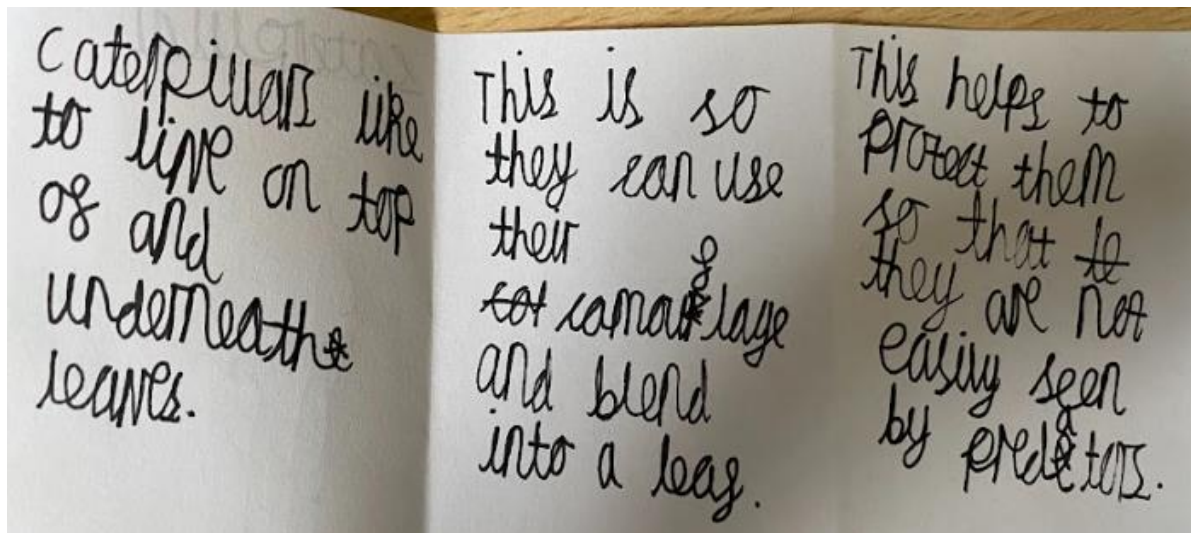 Caterpillars like
to live on top
of and
underneath
leaves.
This is so
they can use
their
camouflage
and blend
into a leaf.
This helps to
protect them
so that
they are not
easily seen
by predators.